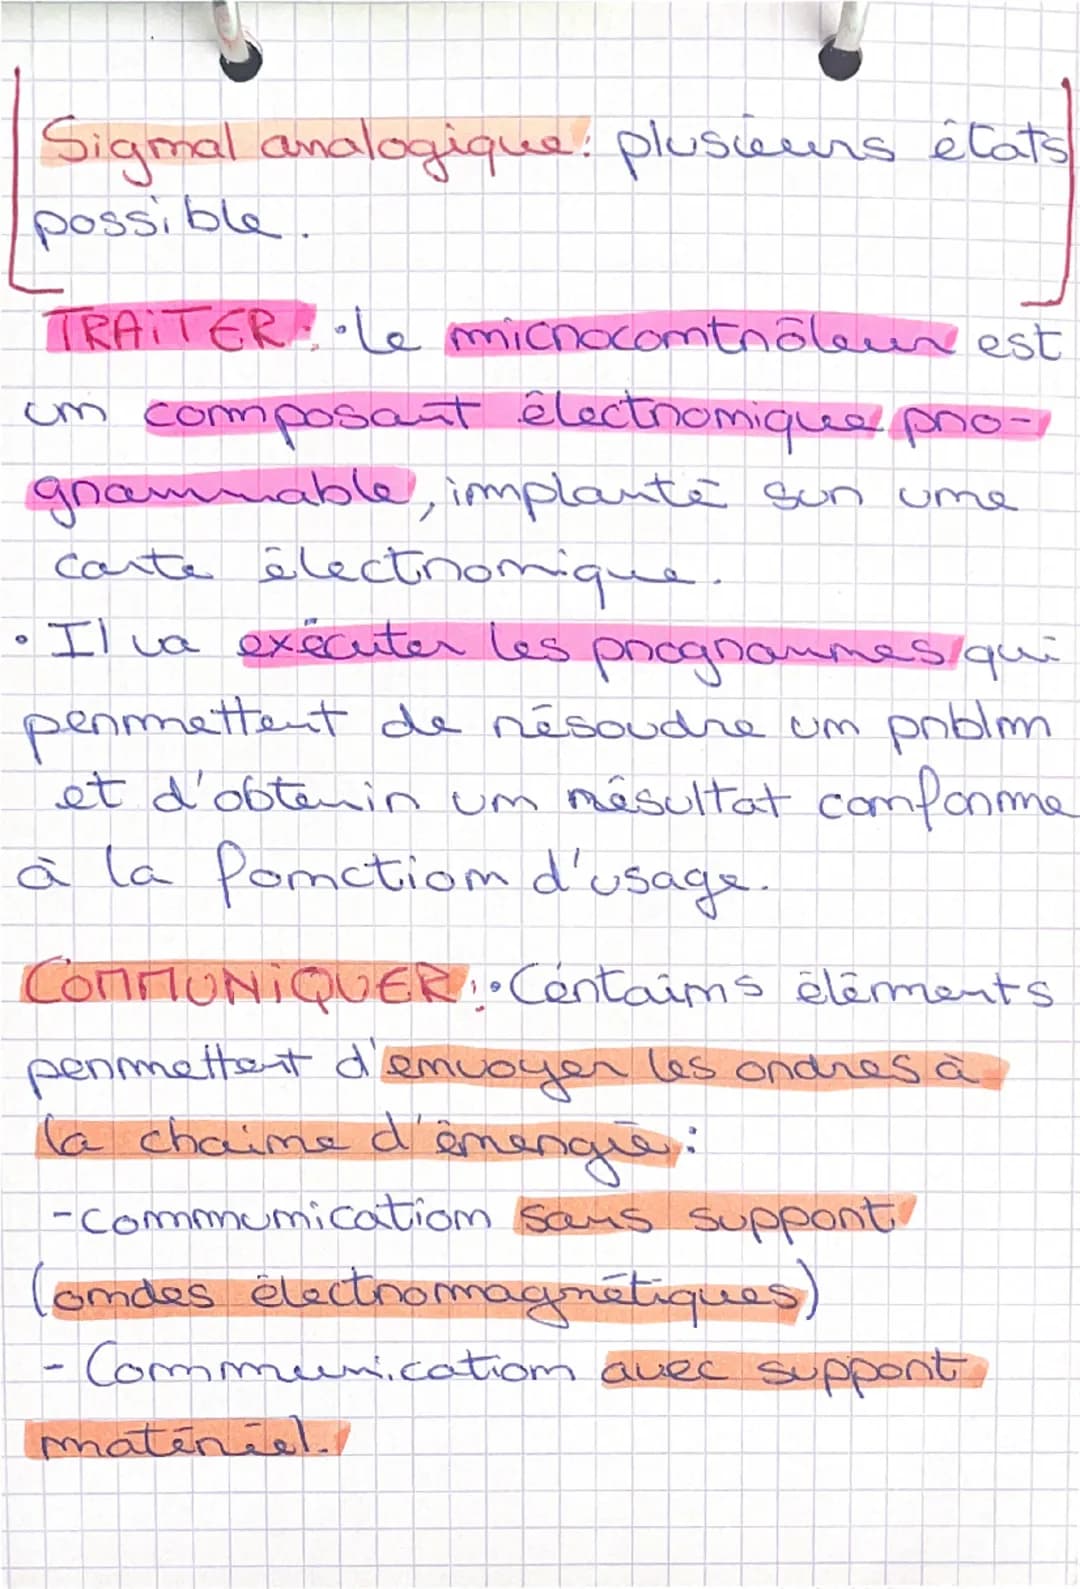 Signal analogique: plusieurs états
possible.
TRAITER: • Le microcontrôleur est
un composant électronique pro-
grammable, implanté sur une
carte électronique.
• Il va exécuter les programmes qui
permettent de résoudre un prblm
et d'obtenir un résultat conforme
à la fonction d'usage.
COMMUNIQUER: • Certains éléments
permettent d'envoyer les ordres à
la chaine d'énergie:
- communication sans support
(ondes électromagnétiques)
- Communication avec support
matériel.